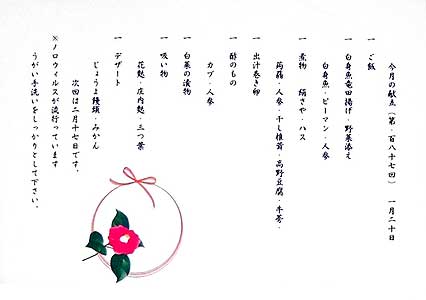 今月の献立(第一百八十七回) 一月二十日
一 ご飯
一 白身魚竜田揚げ・野菜添え
白身魚・ピーマン・人参
一 煮物 絹さや・ハス
蒟蒻・人参・干し椎茸・高野豆腐・牛蒡・
一 出汁巻き卵
一 酢のもの
カブ・人参
一 白菜の漬物
一 吸い物
花麩・庄内麩・三つ葉
一 デザート
じょうよ饅頭・みかん
次回は二月十七日です。
※ノロウィルスが流行っています
うがい手洗いをしっかりとして下さい。